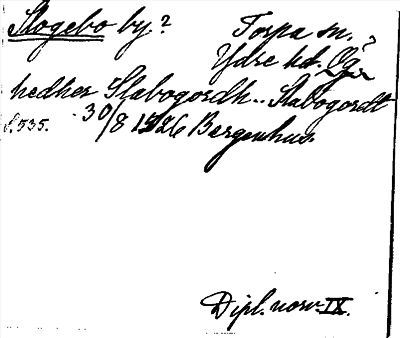 Slogebo by.? Torpa sn.
Ydre hd. Ög.?
hedher Slabogordh.. Slabogordt
s. 535. 30/8 1526 Bergenhus
Dipl. norv. IX.